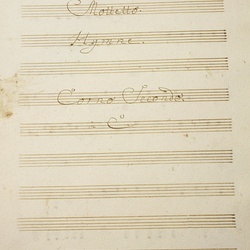 Mottetto.
Hymne.
Corno Secondo.
C.